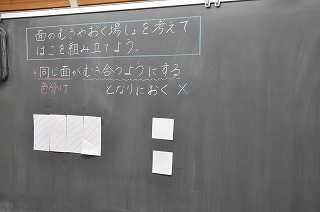 面のむきやおく場しょを考えて
はこを組み立てよう。
・同じ面がむき合うようにする
色分け　となりにおく ×